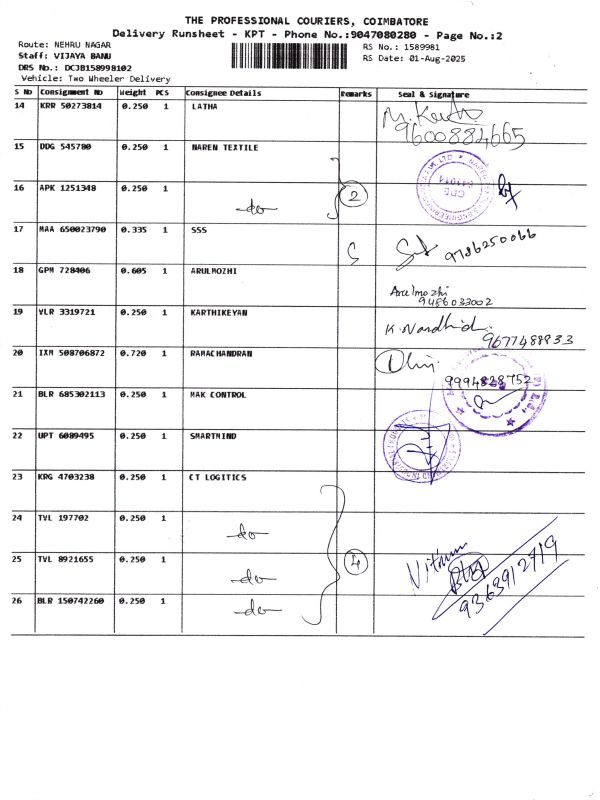 THE PROFESSIONAL COURIERS, COIMBATORE
Delivery Runsheet - KPT - Phone No.:9047080280 - Page No.:2
Route: NEHRU NAGAR
RS No.: 1589981
Staff: VIJAYA BANU
RS Date: 01-Aug-2025
DRS No.: DCJB158998102
Vehicle: Two Wheeler Delivery
S No Consignment No Weight PCS Consignee Details Remarks Seal & Signature
14 KRR 50273814 0.250 1 LATHA
9600884665
15 DDG 545780 0.250 1 NAREN TEXTILE
16 APK 1251348 0.250 1 -do- 2
17 MAA 650023790 0.335 1 SSS S 9786250066
18 GPM 728406 0.605 1 ARULMOZHI
Arulmozhi
9486033002
19 VLR 3319721 0.250 1 KARTHIKEYAN K. Nandhid.
9677488833
20 IXM 508706872 0.720 1 RAMACHANDRAN
9994828752
21 BLR 685302113 0.250 1 MAK CONTROL
22 UPT 6089495 0.250 1 SMARTMIND
23 KRG 4703238 0.250 1 CT LOGITICS
24 TVL 197702 0.250 1 -do-
25 TVL 8921655 0.250 1 -do- 4
26 BLR 150742260 0.250 1 -do- 9363912919